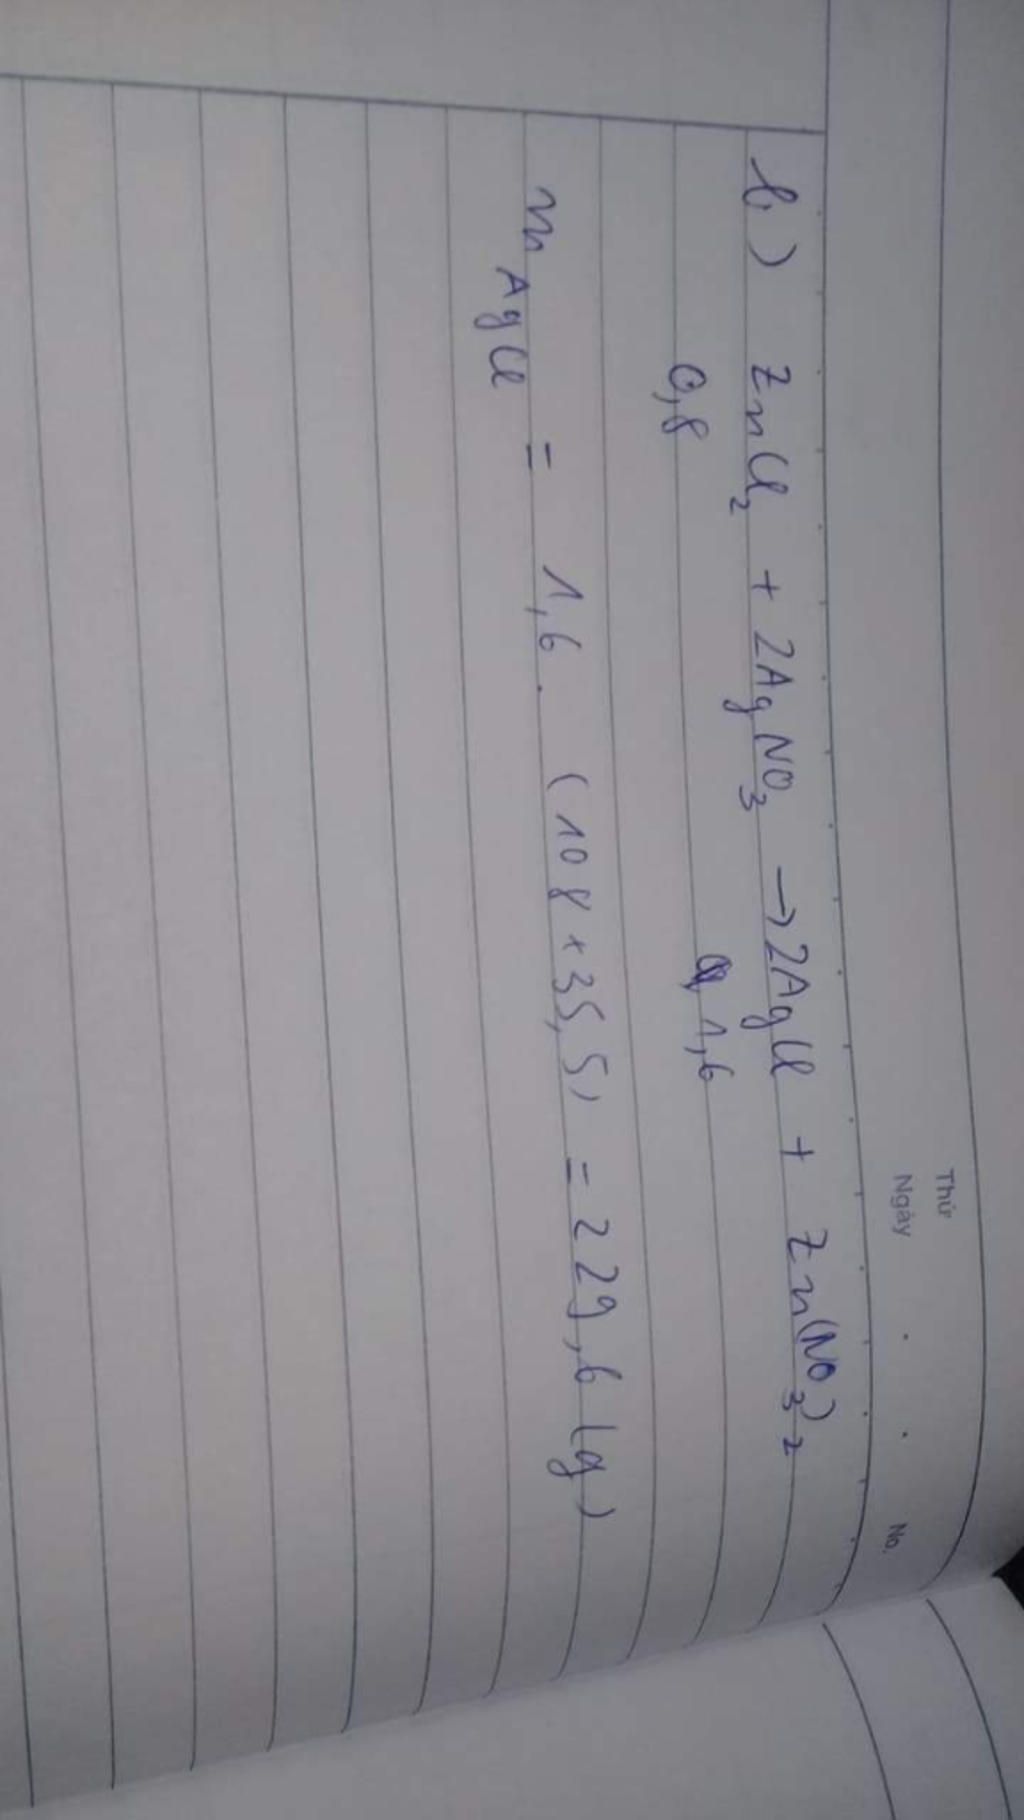 Thứ
Ngày . . No.
b) ZnCl₂ + 2AgNO₃ → 2AgCl + Zn(NO₃)₂
0,8 1,6
m AgCl = 1,6 . (108 + 35,5) = 229,6 (g)